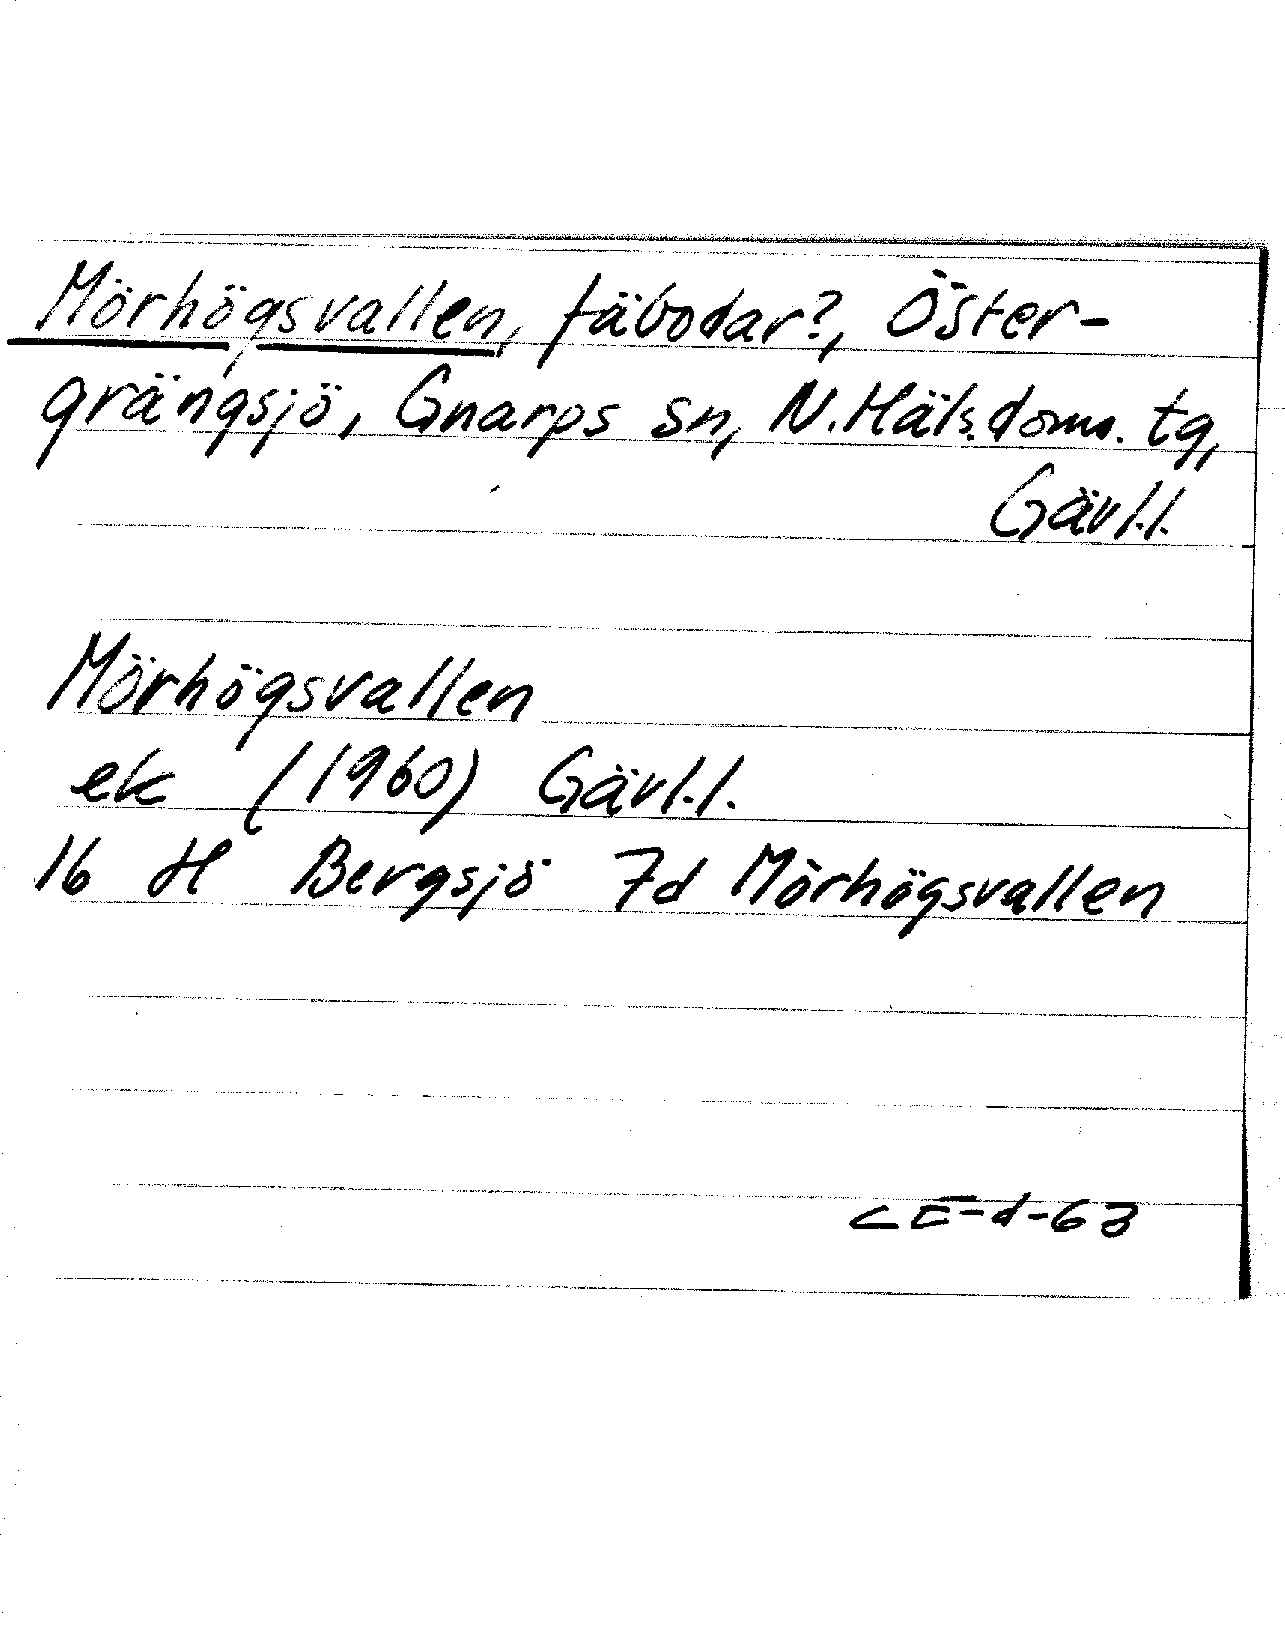 Mörhögsvallen, fäbodar?, Öster-
grängsjö, Gnarps sn, N. Häls. doms. tg,
Gävl.l.
Mörhögsvallen
ek (1960) Gävl.l.
16 H Bergsjö 7d Mörhögsvallen
CE-d-63